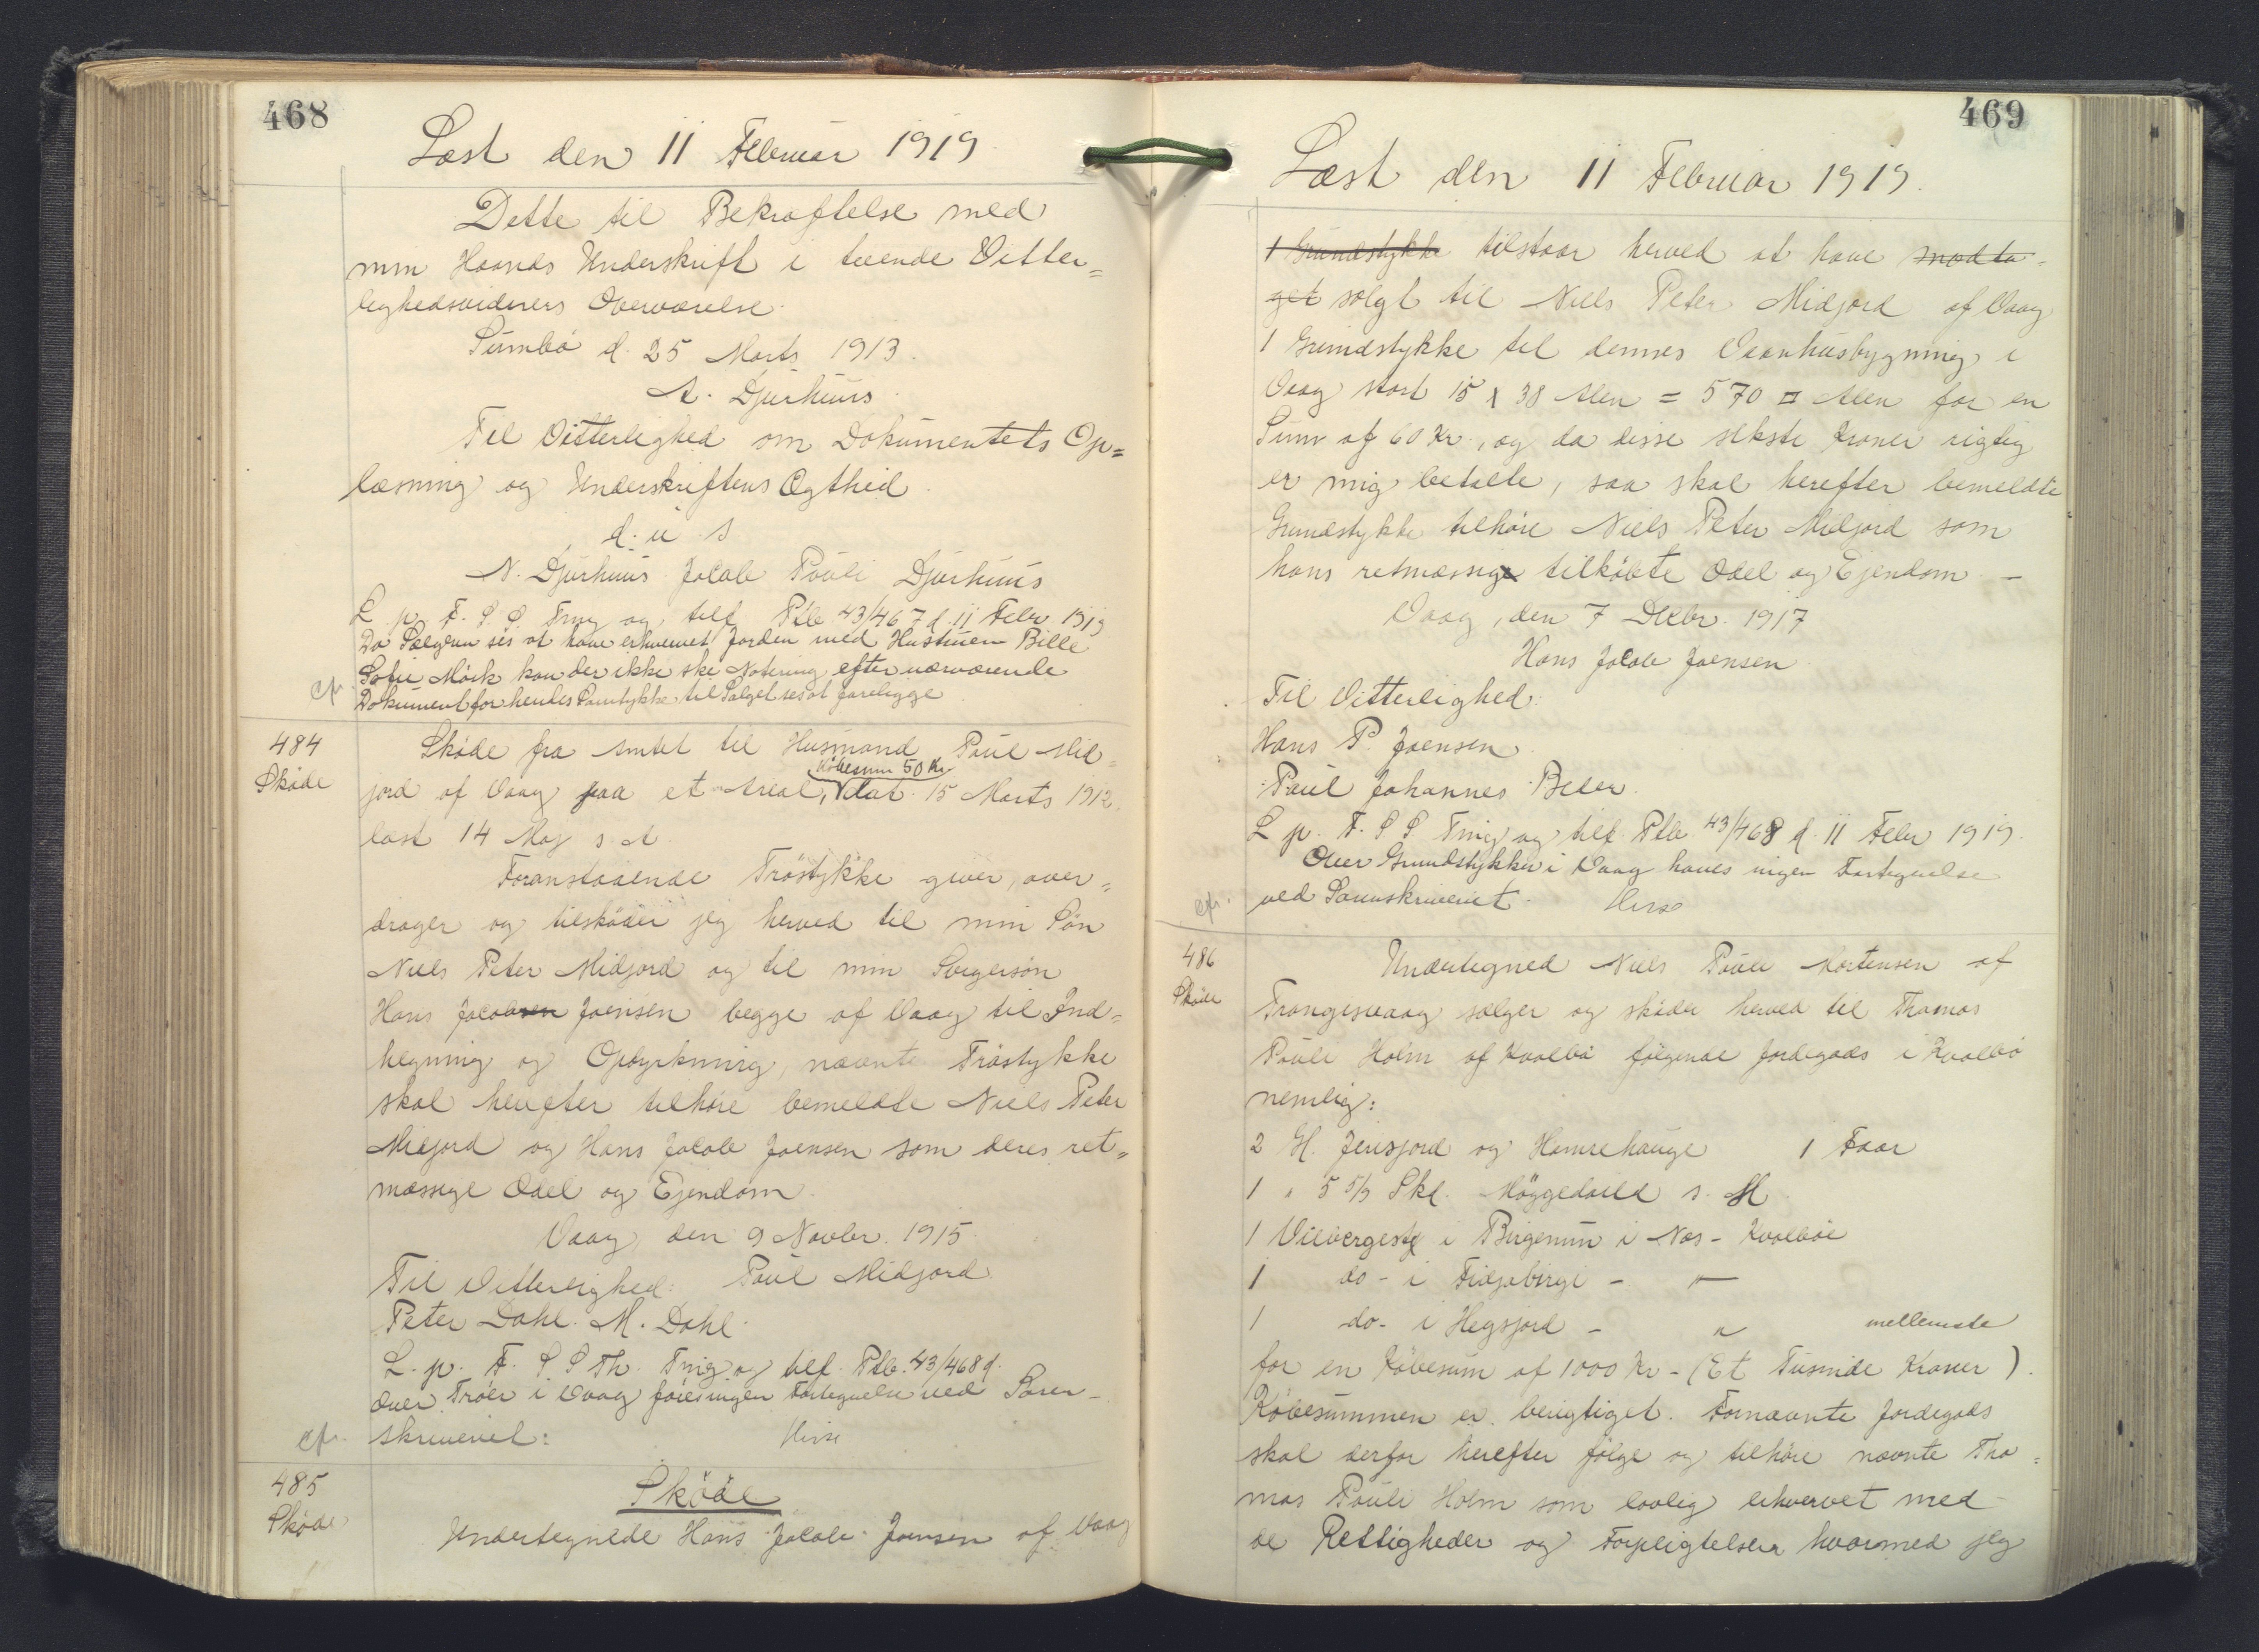 468
Læst den 11 Februar 1919.
Dette til Bekræftelse med
min Haands Underskrift i tvende Vitter=
lighedsvidners Overværelse.
Sumbö d. 25 Marts 1913.
A. Djurhuus.
Til Vitterlighed om Dokumentets Op=
læsning og Underskriftens Ægthed.
d. u. s
N. Djurhuus. Jacob Pouli Djurhuus
L. p. F. S. S. Ting og tilf. Ptb. 43/467 d. 11 Febr. 1919
Da Sælgeren ses at have erhvervet Jorden med Hustruen Bille
Sofie Mörk kan der ikke ske Notering efter nærværende
cfr. Dokument før hendes Samtykke til Salget ses at foreligge
484
Sköde
Sköde fra Amtet til Husmand Poul Mid=
Købesum 50 Kr.
jord af Vaag paa et Areal, dat. 15 Marts 1912,
læst 14 Maj s. A.
Foranstaaende Tröstykke giver, over=
drager og tilsköder jeg herved til min Sön
Niels Peter Midjord og til min Svigersön
Hans Jacobsen Joensen begge af Vaag til Ind=
hegning og Opdyrkning, nævnte Tröstykke
skal herefter tilhöre bemeldte Niels Peter
Midjord og Hans Jacob Joensen som deres ret=
mæssige Odel og Ejendom.
Vaag, den 9 Novbr. 1915
Til Vitterlighed: Poul Midjord
Peter Dahl. M. Dahl.
L. p. F. S. S Th. Ting og tilf. Ptb. 43/468 d.
Over Tröer i Vaag föres ingen Fortegnelse ved Soren-
cfr. skriveriet:
485
Sköde
Sköde
Undertegnede Hans Jacob Joensen af Vaag
469
Læst den 11 Februar 1919.
1 Grundstykke tilstaar herved at have modta=
get solgt til Niels Peter Midjord af Vaag
1 Grundstykke til dennes Vaanhusbygning i
Vaag stort 15 x 38 Alen = 570 □ Alen for en
Sum af 60 Kr., og da disse sekste Kroner rigtig
er mig betalte, saa skal herefter bemeldte
Grundstykke tilhöre Niels Peter Midjord som
hans retmæssige tilköbte Odel og Ejendom. –
Vaag, den 7 Decbr. 1917
Hans Jacob Joensen
Til Vitterlighed:
Hans P. Joensen
Poul Johannes
L p. F. S S Ting og tilf. Ptb. 43/468 d. 11 Febr 1919.
Over Grundstykker i Vaag haves ingen Fortegnelse
cfr. ved Sorenskriveriet.
486
Sköde
Undertegned Niels Pouli Mortensen af
Trangesvaag sælger og sköder herved til Thomas
Pouli Holm af Kvalbö fölgende Jordegods i Kvalbö
nemlig:
2 G. Jensjord og Hamrehauge 1 Faar
1 " 5 5/9 Skd. s. M.
1 i i Nes - Kvalböe
1 do - i - "
1 do - i Hegsjord - " mellemste
for en Köbesum af 1000 Kr - (Et Tusinde Kroner).
Köbesummen er berigtiget. Fornævnte Jordegods
skal derfor herefter fölge og tilhöre nævnte Tho=
mas Pouli Holm som lovlig erhvervet med
de Rettigheder og Forpligtelser hvormed jeg